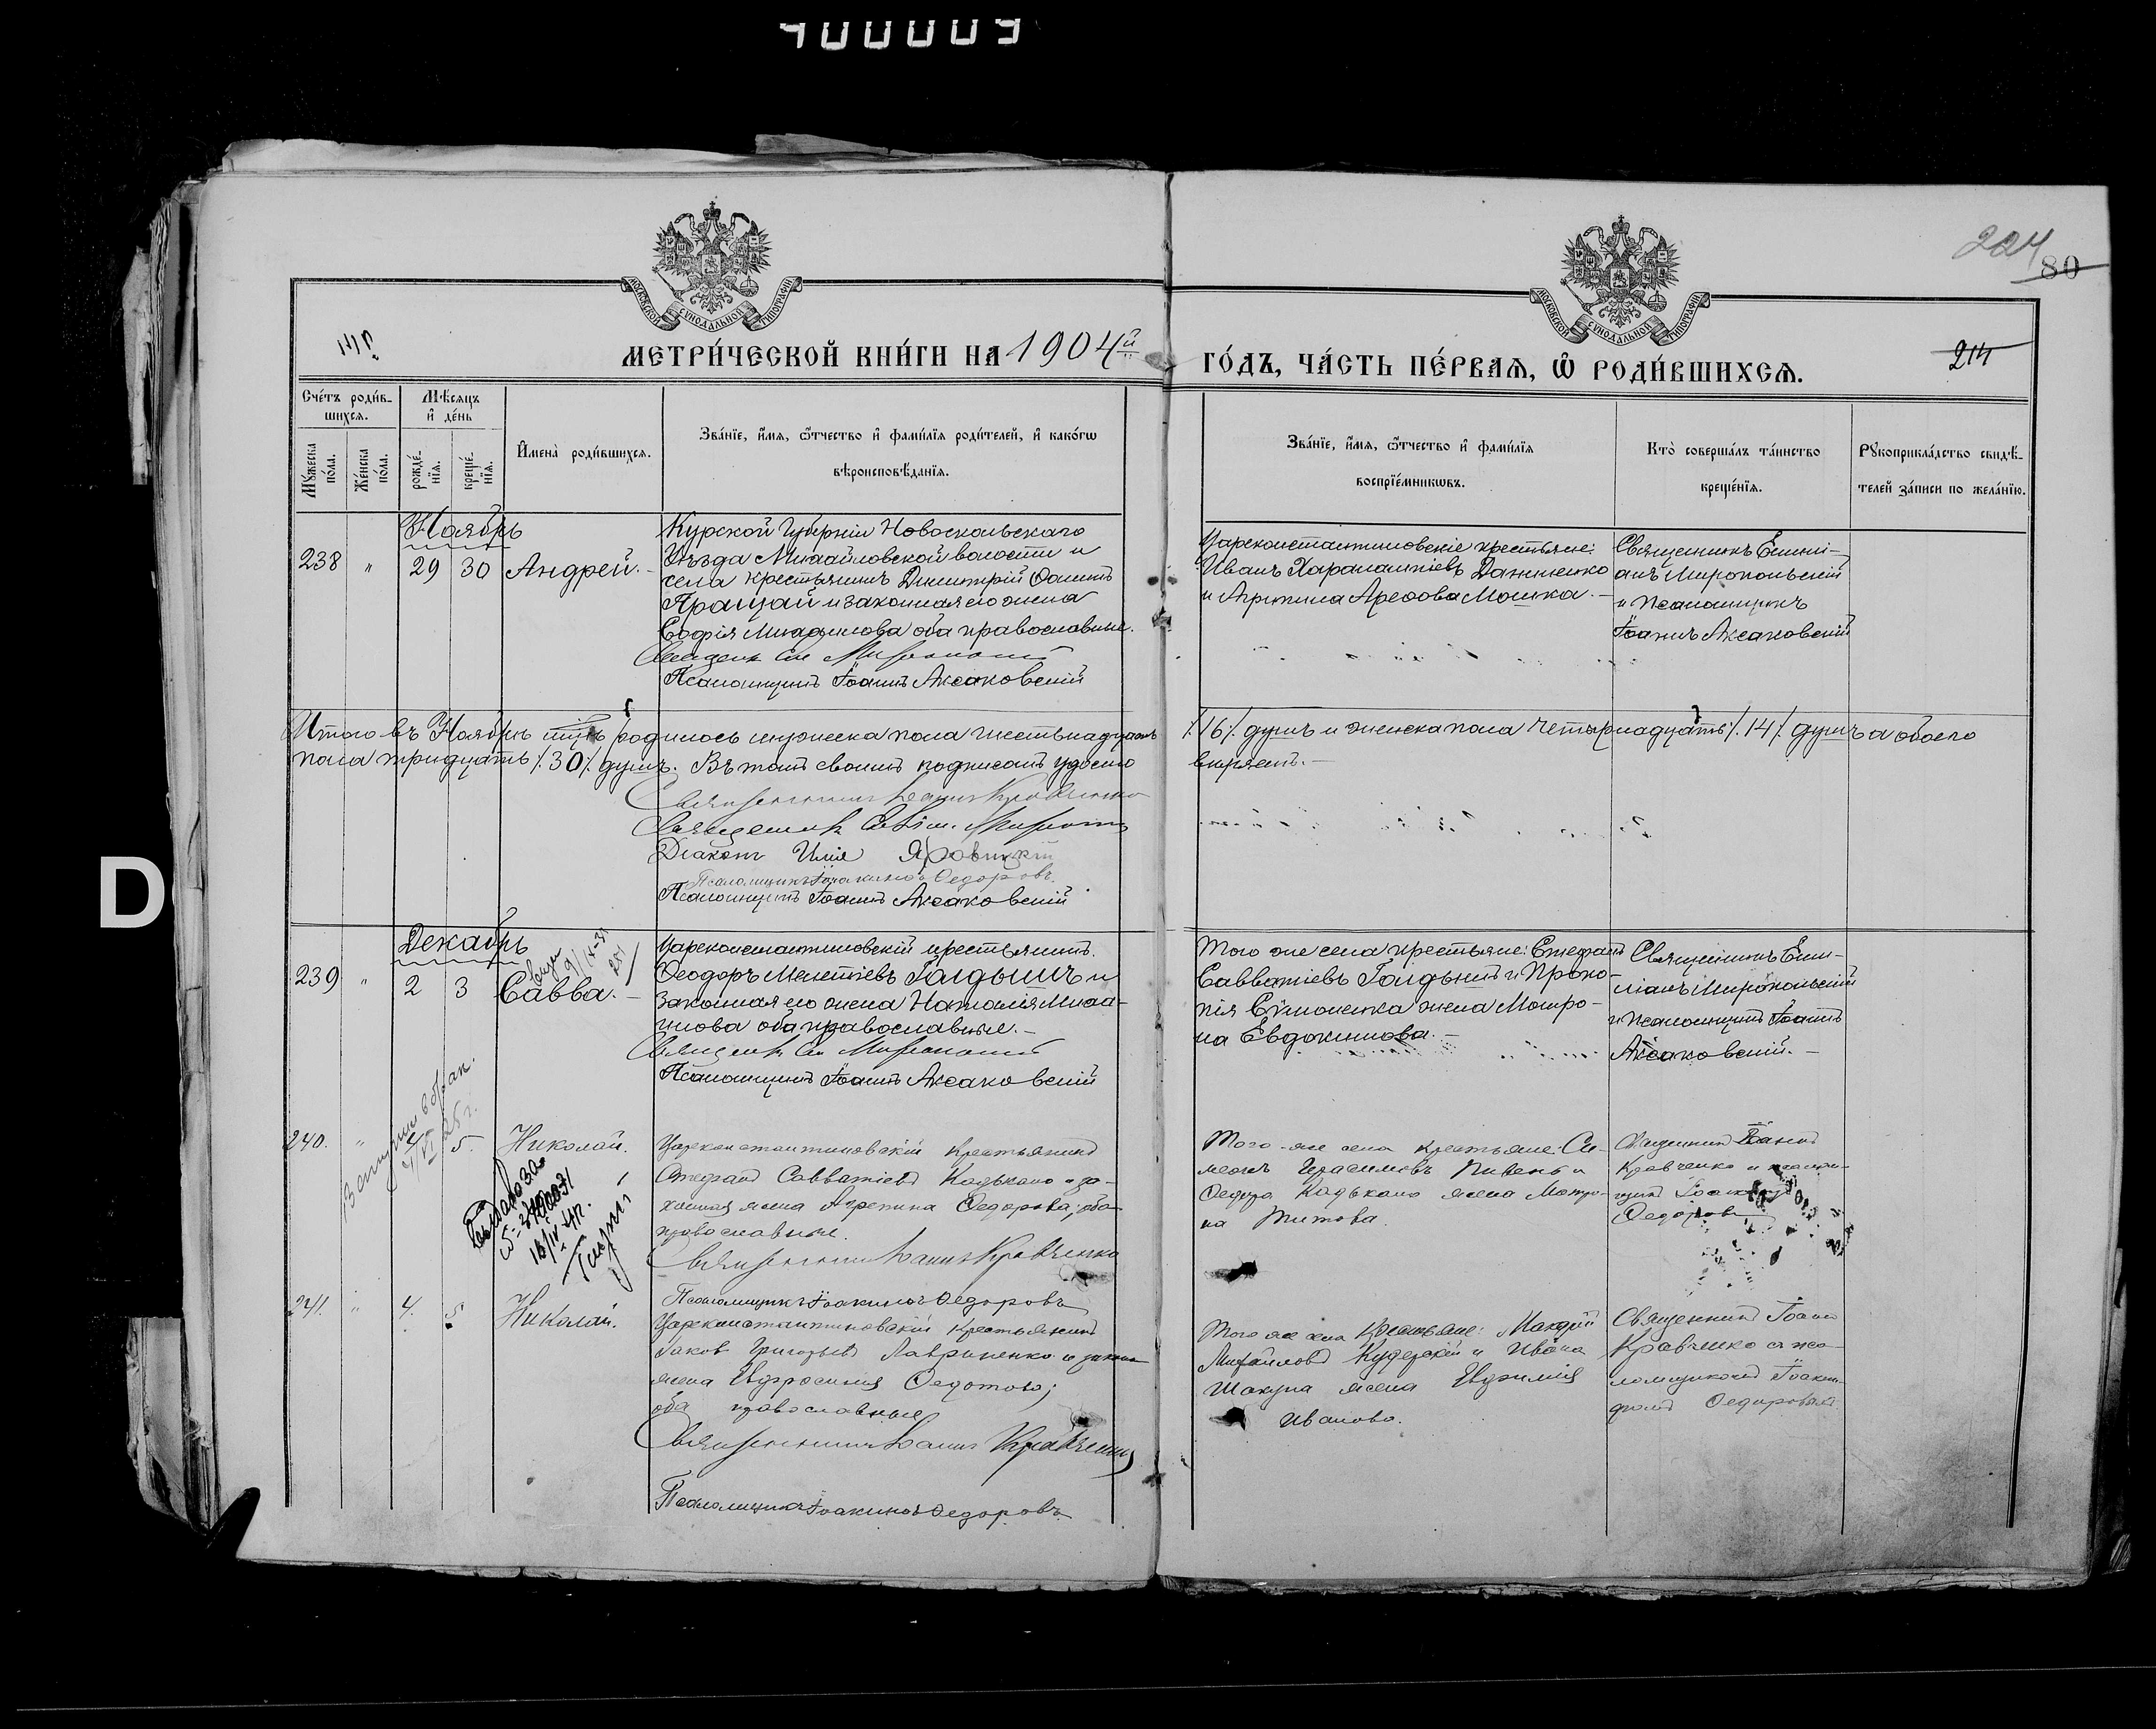 400009
224
80
МОСКОВСКОЙ СѴНОДАЛЬНОЙ ТИПОГРАФІИ
МОСКОВСКОЙ СѴНОДАЛЬНОЙ ТИПОГРАФІИ
МЕТРИ́ЧЕСКОЙ КНИ́ГИ НА 1904й
ГО́ДЪ, ЧА́СТЬ ПЕ́РВАЯ, Ѡ РОДИ́ВШИХСЯ.
214
Сче́тъ роди́в-
шихся.
Мѣсяцъ
и де́нь
Мꙋжеска по́ла.
Же́нска по́ла.
рожде́-
нїя.
креще́-
нїя.
Имена̀ роди́вшихся.
Зва́нїе, и́мя, ѻ́тчество и фами́лїя роди́телей, и како́гѡ
вѣроисповѣ́данїя.
Зва́нїе, и́мя, ѻ́тчество и фами́лїя
воспрїе́мникѡвъ.
Кто̀ соверша́лъ та́инство
креще́нїя.
Рꙋкоприкла́дство свидѣ́-
телей за́писи по жела́нїю.
Ноябрь
238 " 29 30 Андрей.
Курской Губерніи Новооскольскаго
Уѣзда Михайловской волости и
села крестьянинъ Димитрій
и законная его жена
Софія оба православные.
Псаломщикъ Іоаннъ Аксаковскій
Царекостантиновскіе крестьяне:
Иванъ Харалампіевъ Данненко
и Арефова Мошка.
Священникъ Емилі-
анъ Миропольскій
и Псаломщикъ
Іоаннъ Аксаковскій
Итого въ Ноябрѣ родилось мужеска пола шестьнадцать
/.16/. душъ и женска пола четырнадцать /.14/. душъ а обоего
пола тридцать /.30/. душъ. Въ томъ своимъ подписомъ удосто
вѣряемъ.
Священникъ Іоаннъ Кравченко
Діаконъ Илія Яровицкій
Псаломщикъ Іоакимъ Федоровъ
Псаломщикъ Іоаннъ Аксаковскій
Декабрь
239 " 2 3 Савва.
Царекостантиновскій крестьянинъ
Ѳеодоръ Мелетіевъ Галдышъ и
законная его жена Наталія Миха-
илова оба православные.
Псаломщикъ Іоаннъ Аксаковскій
Того же села крестьяне: Стефанъ
Савватіевъ Галдышъ и Проко-
пія Симоненка жена Мотро-
на Евдокимова.
Священникъ Еми-
ліанъ Миропольскій
и Псаломщикъ Іоаннъ
Аксаковскій.
240. " 4 5. Николай.
Царекостантиновскій Крестьянинъ
Стефанъ Савватіевъ Кадькало и за-
конная жена Агрепина Федорова; оба
православные.
Священникъ Іоаннъ Кравченко
Псаломщикъ Іоакимъ Федоровъ
Того-же села Крестьяне: Си-
меонъ Герасимовъ Пивень и
Федора Кадькало жена Мотро-
на Титова.
Священникъ Іоаннъ
Кравченко и псалом-
щикъ
Федоровъ
241. " 4. 5. Николай.
Царекостантиновскій Крестьянинъ
Іаковъ Григорьевъ Лавриненко и законн
жена Евфросинія Федотова;
оба православные
Священникъ Іоаннъ Кравченко
Псаломщикъ Іоакимъ Федоровъ
Того же села Крестьяне:
Михайловъ Кудерскій и Ивана
Шакуна жена Евфимія
Иванова.
Священникъ Іоаннъ
Кравченко и пса-
ломщикъ
Федоровъ
D